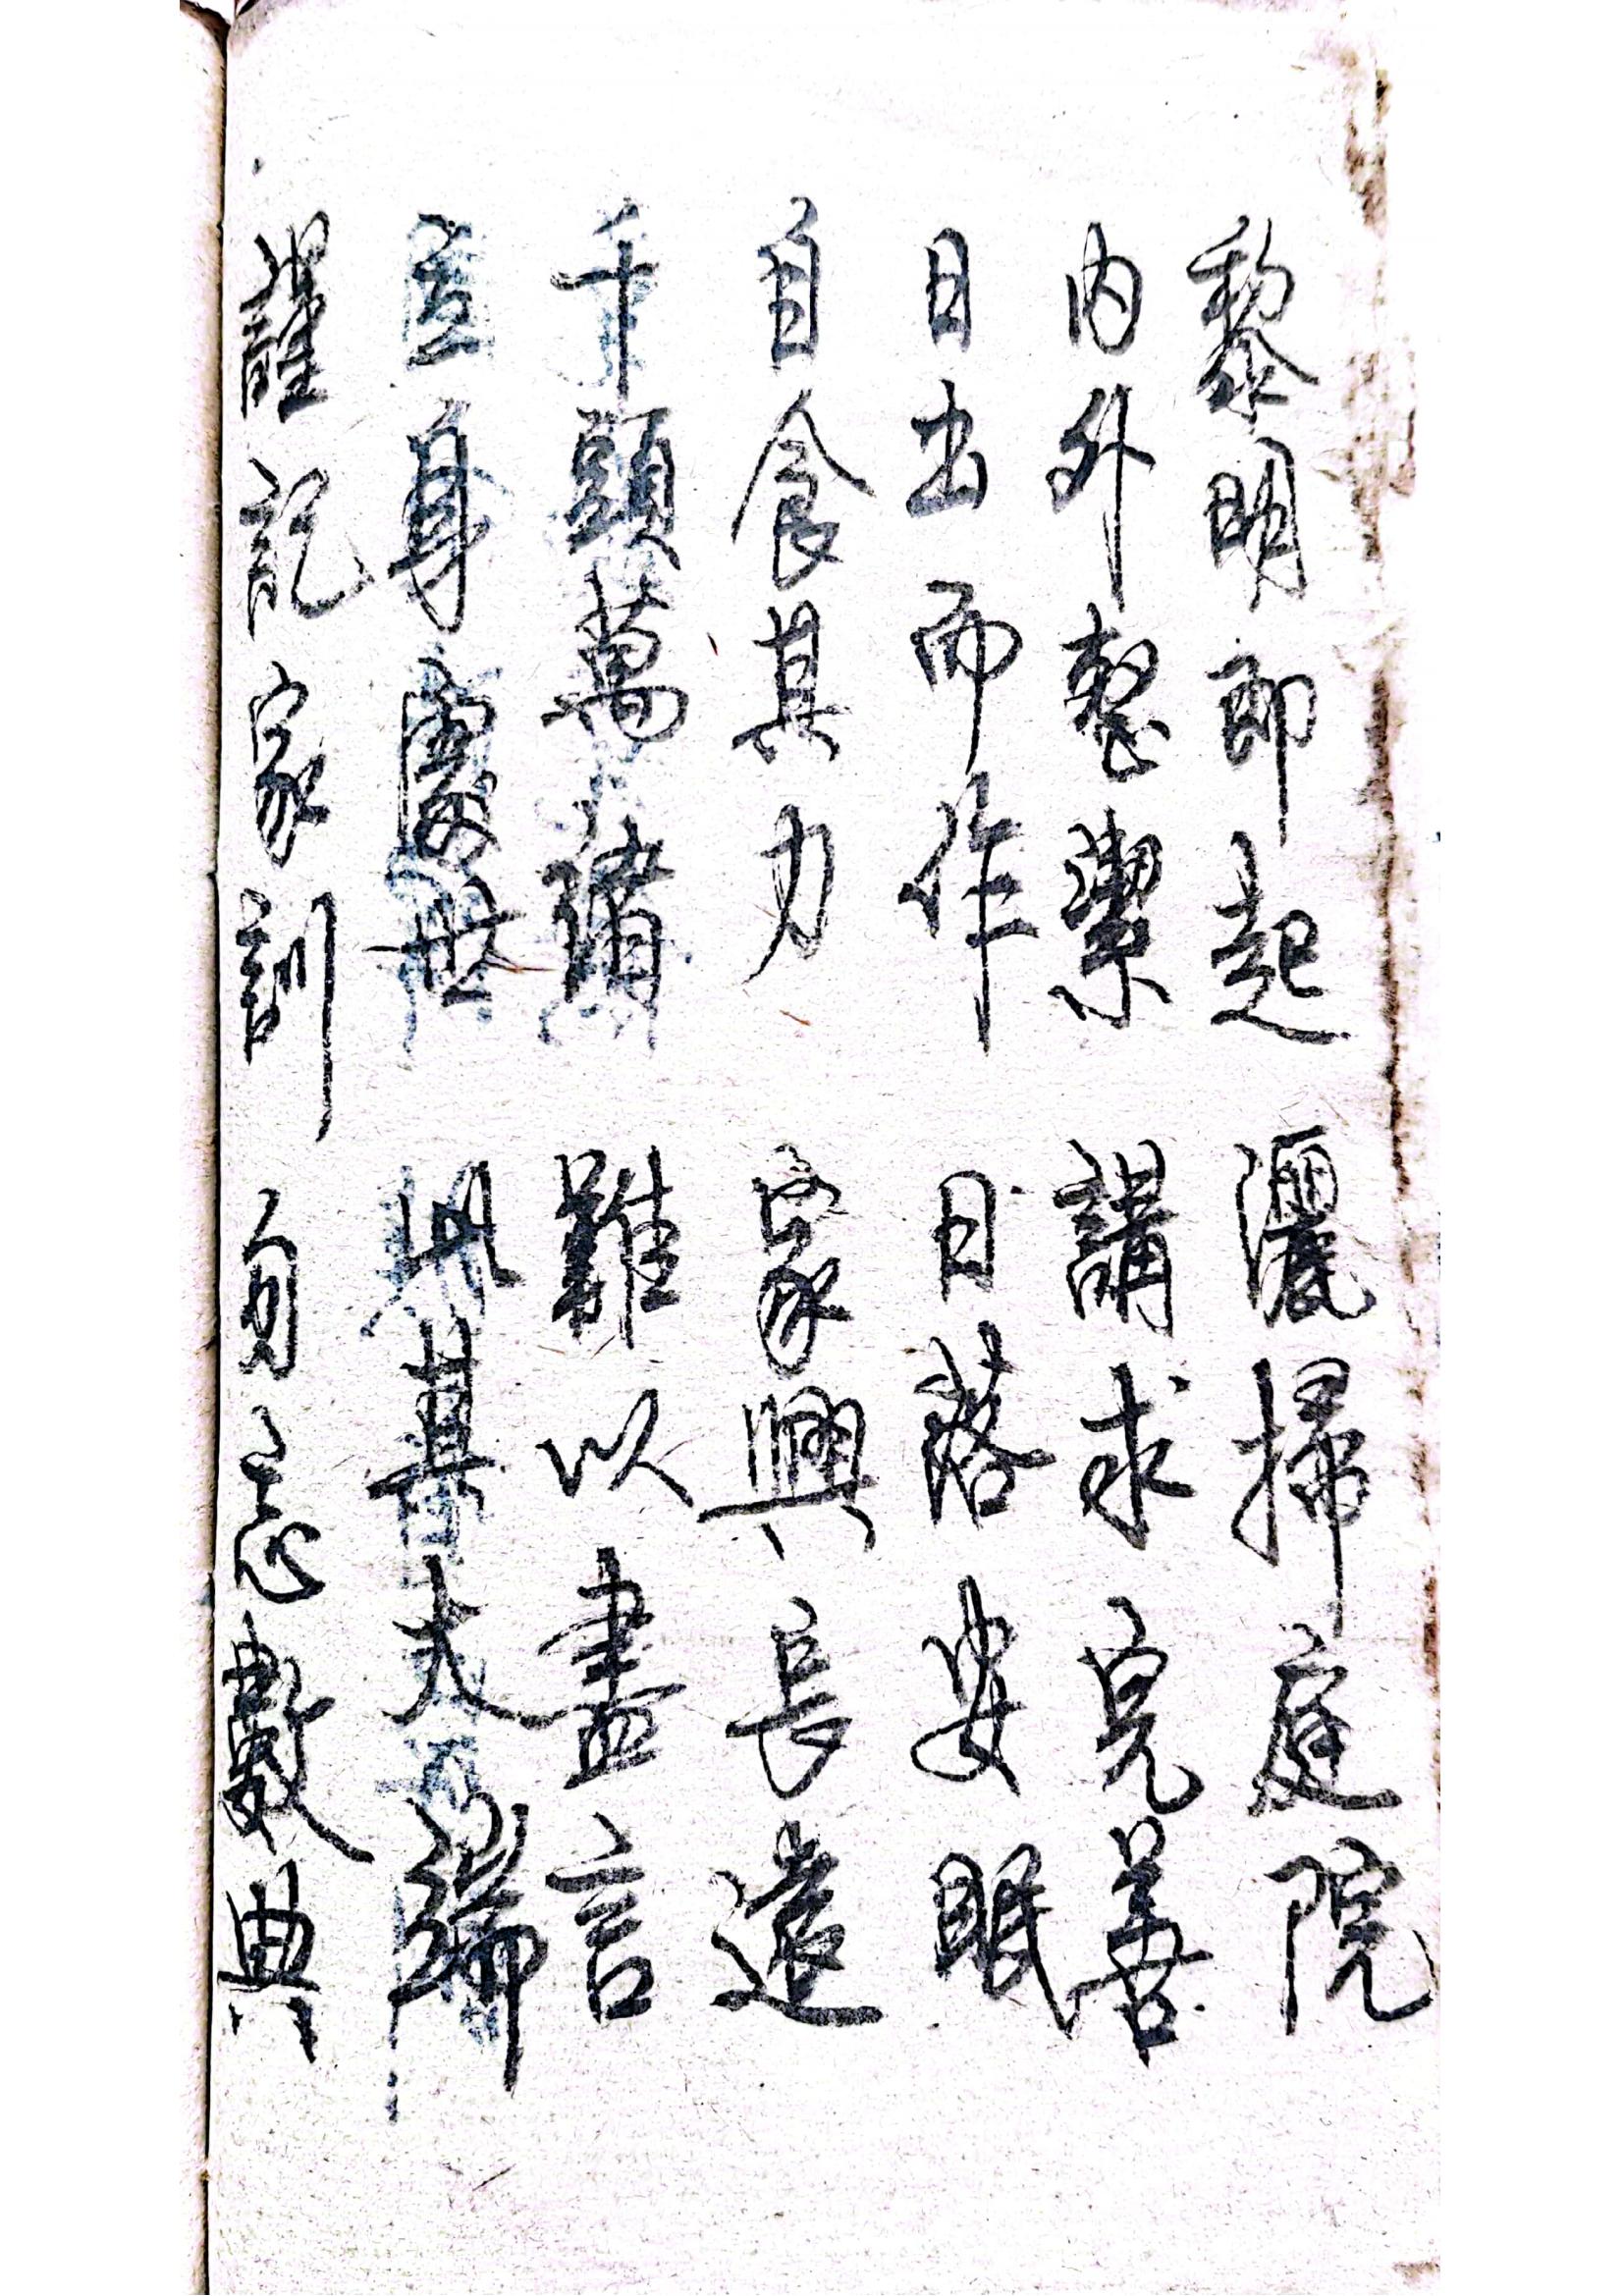 黎明即起 灑掃庭院
内外整潔 講求完善
日出而作 日落安眠
自食其力 家興長遠
千頭萬緒 難以盡言
立身處世 此其大端
謹記家訓 勿忘數典